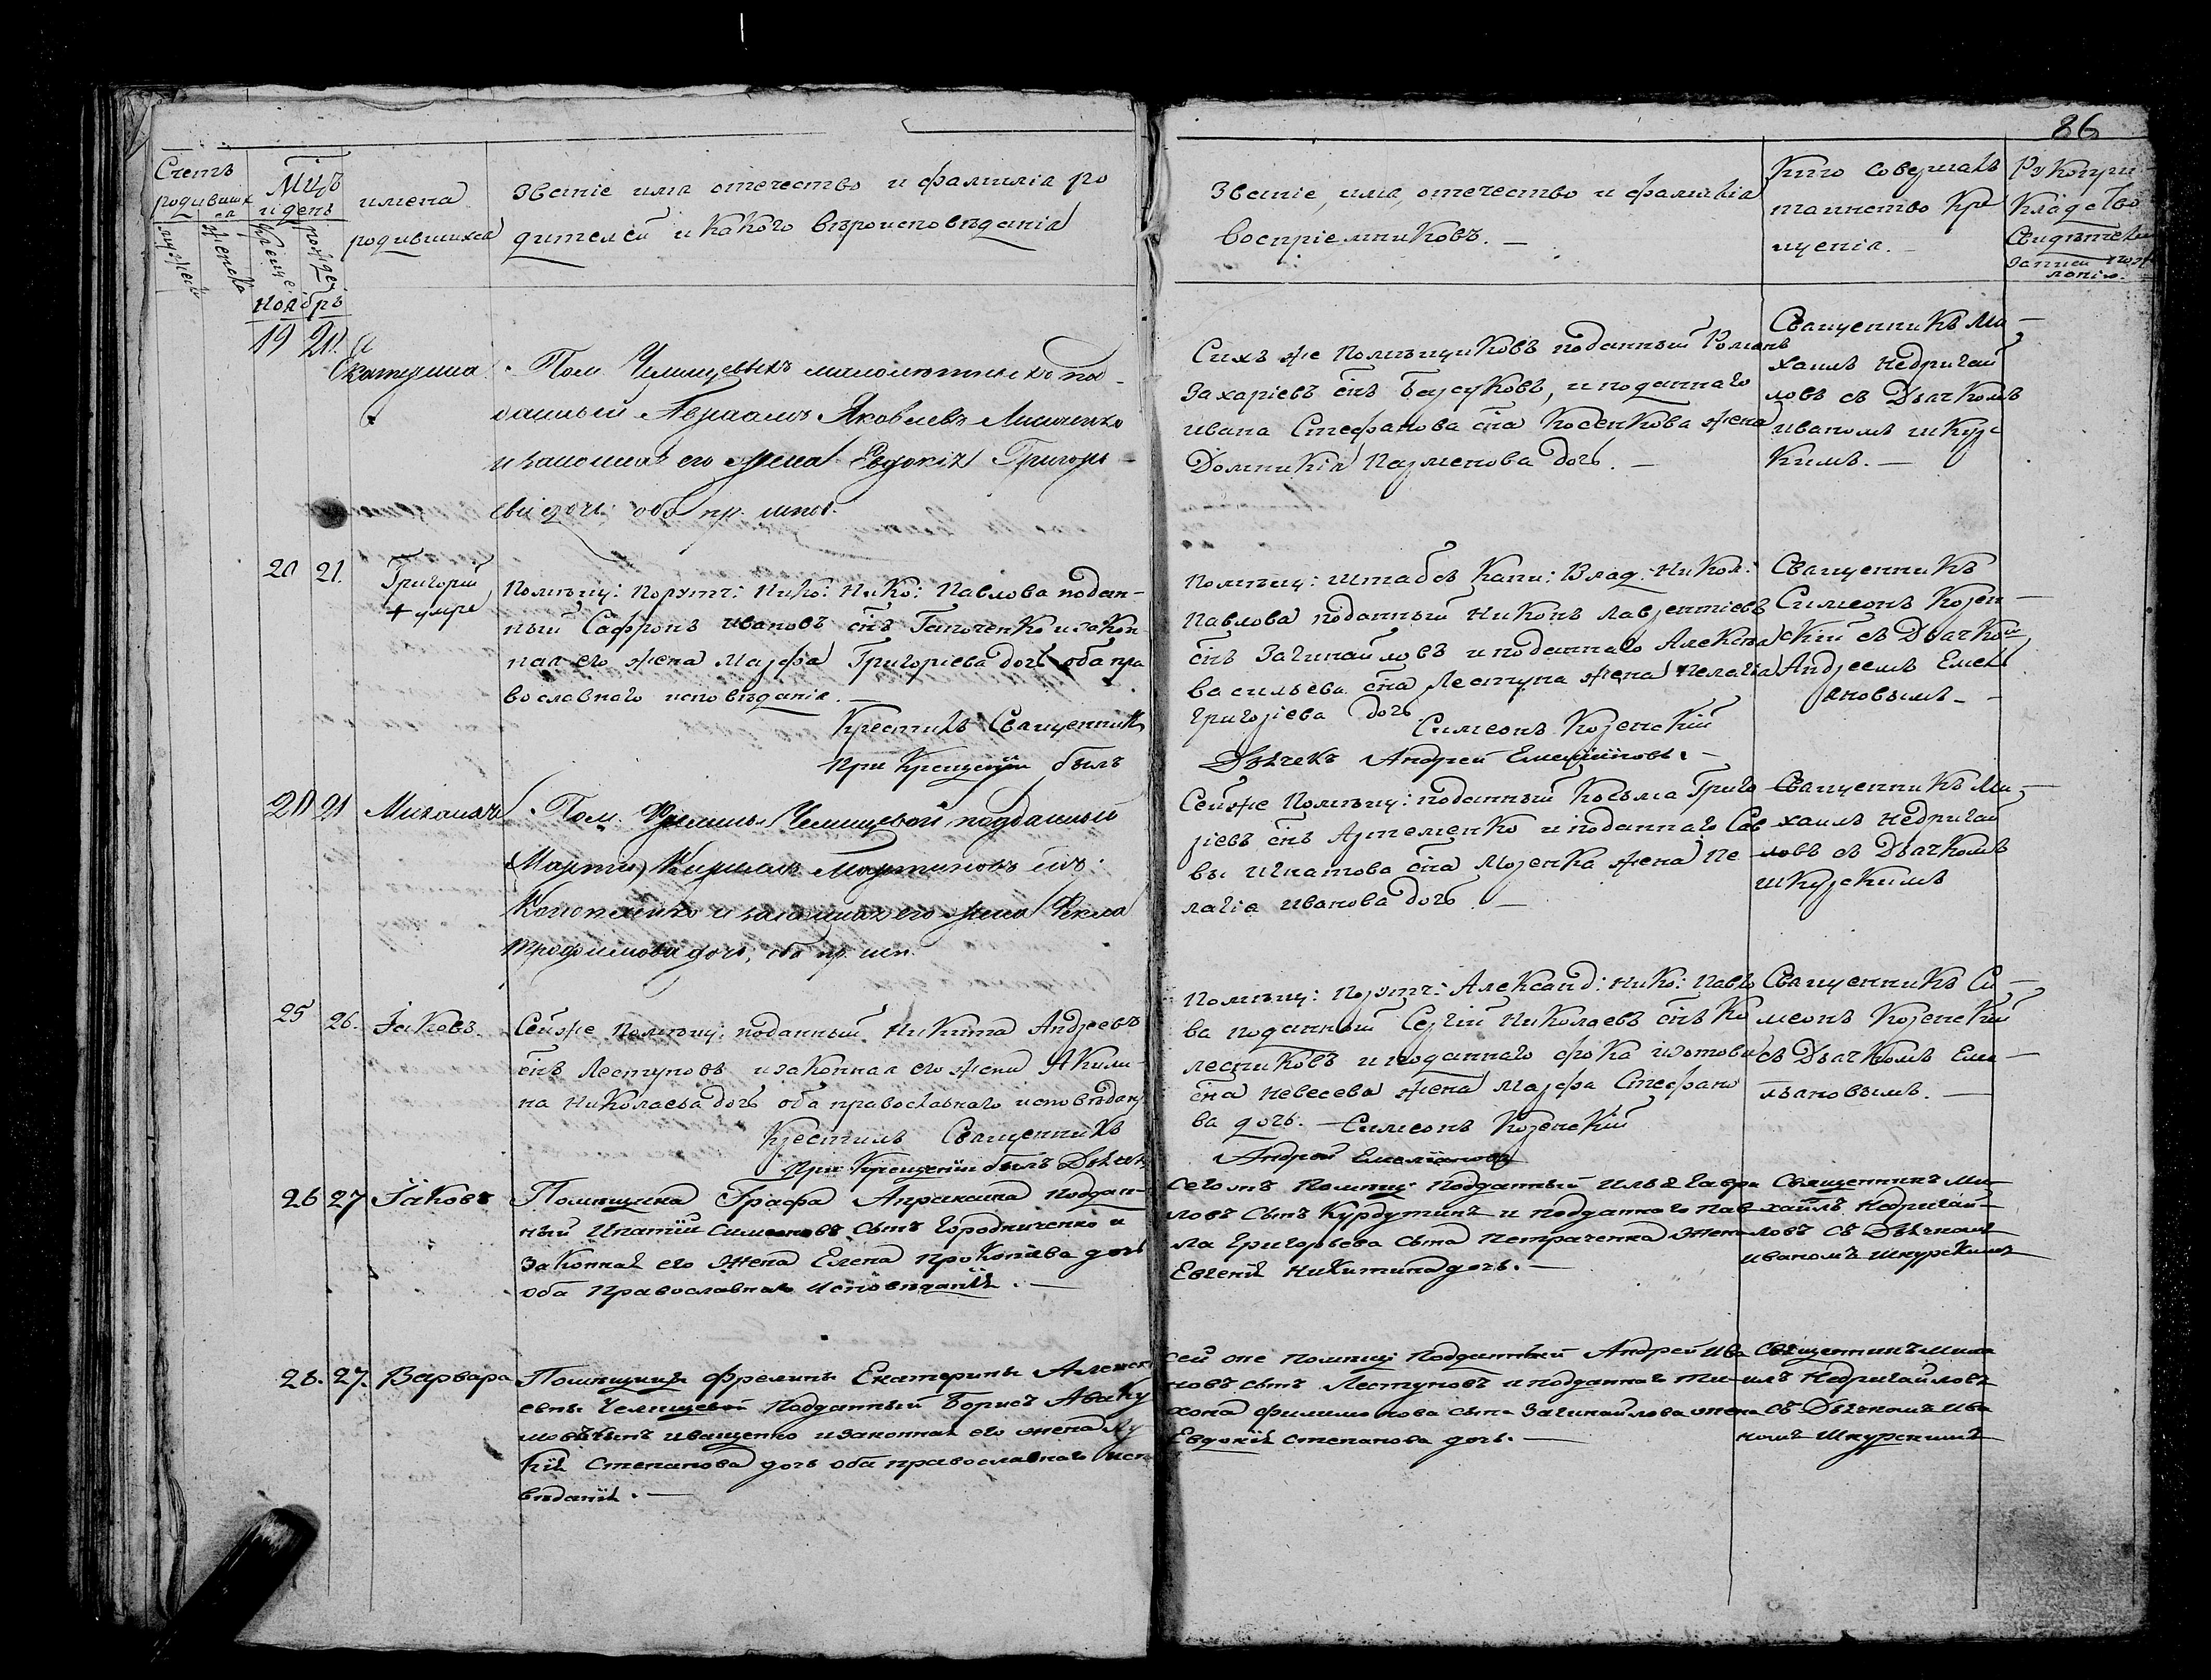 86
Счетъ
родивших
ся
мужеск
женска
Мцъ
и день
крещ:
рожден
имена
родившихся
Званіе имя отечество и фамилія ро
дителей и какого вѣроисповѣданія
Званіе, имя, отечество и фамилія
воспріемниковъ. —
Кто совершалъ
таинство кре
щенія. —
Рукопри
кладство
Свидѣтелей
записи
ноябръ
19 20.
Екатерина
Пом. Челищевыхъ малолѣтныхъ под-
данный Авраамъ Яковлевъ Мисченко
и законная его жена Евдокія Григорь-
ева дочь оба пр. испов.
Сихъ же Помѣщиковъ поданный Романъ
Захаріевъ снъ Барсуковъ, и поданнаго
ивана Стефанова сна Косенкова жена
Домникія Парменова дочь. —
Священникъ Ми-
хаилъ недригай
ловъ съ Дьячкомъ
иваномъ шкурс
кимъ. —
20 21.
Григорий
+ умре
Помѣщ: Порутч: Нико: Нико: Павлова подан-
ный Сафронъ ивановъ снъ Гапоченко и закон
ная его жена Марфа Григоріева дочь оба пра
вославного исповѣданія. —
Крестилъ Священникъ
При Крещеніи былъ
Помѣщ: штабсъ Капи: Влад: Никол:
Павлова поданный Никонъ лаврентіевъ
снъ Загинайловъ и поданнаго Алексѣя
васильева сна Лестуна жена пелагія
григоріева дочь
Симеонъ Козенский
Дьячекъ Андрей Емельяновъ. —
Священникъ
Симеонъ Козен-
ский съ Дьячком
Андреемъ Емель
яновымъ —
20 21
Михаилъ
Пом. Фрелины Челищевой подданный
Кирилъ Мартиновъ снъ
Кононенко и законная его жена Фекла
Трофимова дочь; оба пр. исп.
Сей же Помѣщ: поданный Косьма Григо
ріевъ снъ Артеменко и поданнаго Сав
вы Игнатова сна Мозенка жена Пе-
лагіа иванова дочь. —
Священникъ Ми-
хаилъ недригай
ловъ съ Дьячкомъ
шкурскимъ
25 26.
Іаковъ.
Сей же помѣщ: поданный Никита Андреевъ
снъ Лестуновъ и законная его жена Акили-
на Николаева дочь оба православнаго исповѣдан
Крестилъ Священникъ
При Крещеніи былъ Дьячекъ
Помѣщ: Порутч: Александ: Нико: Павло
ва поданный Сергій Николаевъ снъ Ко
лесниковъ и поданнаго фока изотова
сна Невесева жена Марфа Стефано
ва дочь. — Симеонъ Козенский
Андрей Емельяновъ
Священникъ Си-
меонъ Козенский
съ Дьячкомъ Еме-
льяновымъ. —
26 27
Іаковъ
Помѣщика Графа Апраксина поддан-
ный Ипатій Симеоновъ сынъ Городниченко и
законная его жена Елена Прокопіева дочь
оба православнаго исповѣданія. —
Сегожъ помѣщ: подданный илья гаври
ловъ сынъ Курдупинъ и подданного пав
ла григорьева сына петраченка жена
Евгенія Никитина дочь. —
Священникъ Ми-
хаилъ Недригай-
ловъ съ Дьячкомъ
иваномъ шкурскимъ
26. 27.
Варвара
Помѣщицы фрелины Екатерины Алексѣ
евны Челищевой подданный Борисъ Аваку
мовъ сынъ иващенко и законная его жена Лу
кія Степанова дочь оба православнаго испо
вѣданія. —
сей же помѣщ: подданный Андрей ива
новъ сынъ Лестуновъ и подданнаго ти-
хона филимонова сына Загинайлова жена
Евдокія степанова дочь. —
Священникъ миха
илъ Недригайловъ
съ Дьячкомъ ива
номъ шкурскимъ